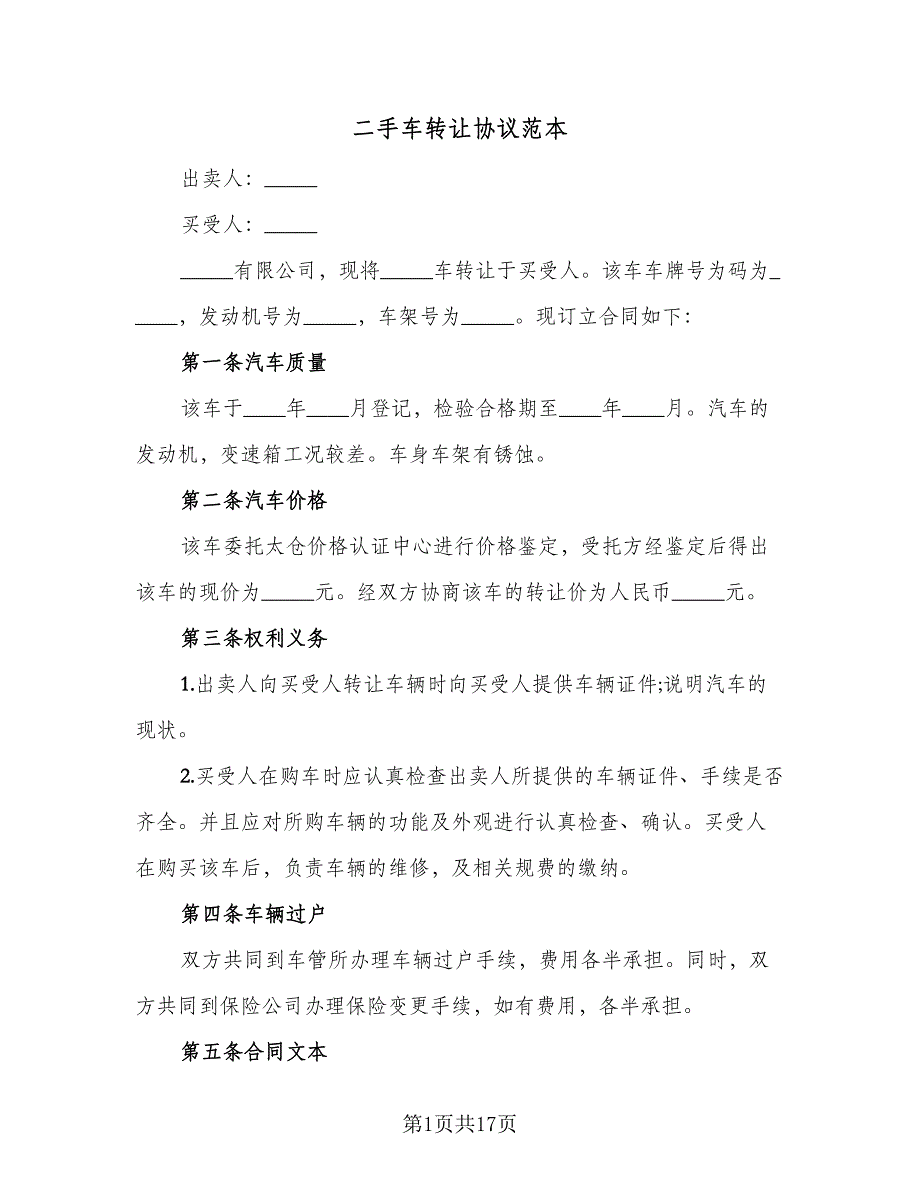 二手车转让协议范本
出卖人：_____
买受人：_____
_____有限公司，现将_____车转让于买受人。该车车牌号为码为_
____，发动机号为_____，车架号为_____。现订立合同如下：
第一条汽车质量
该车于____年____月登记，检验合格期至____年____月。汽车的
发动机，变速箱工况较差。车身车架有锈蚀。
第二条汽车价格
该车委托太仓价格认证中心进行价格鉴定，受托方经鉴定后得出
该车的现价为_____元。经双方协商该车的转让价为人民币_____元。
第三条权利义务
1.出卖人向买受人转让车辆时向买受人提供车辆证件;说明汽车的
现状。
2.买受人在购车时应认真检查出卖人所提供的车辆证件、手续是否
齐全。并且应对所购车辆的功能及外观进行认真检查、确认。买受人
在购买该车后，负责车辆的维修，及相关规费的缴纳。
第四条车辆过户
双方共同到车管所办理车辆过户手续，费用各半承担。同时，双
方共同到保险公司办理保险变更手续，如有费用，各半承担。
第五条合同文本
第1页共17页